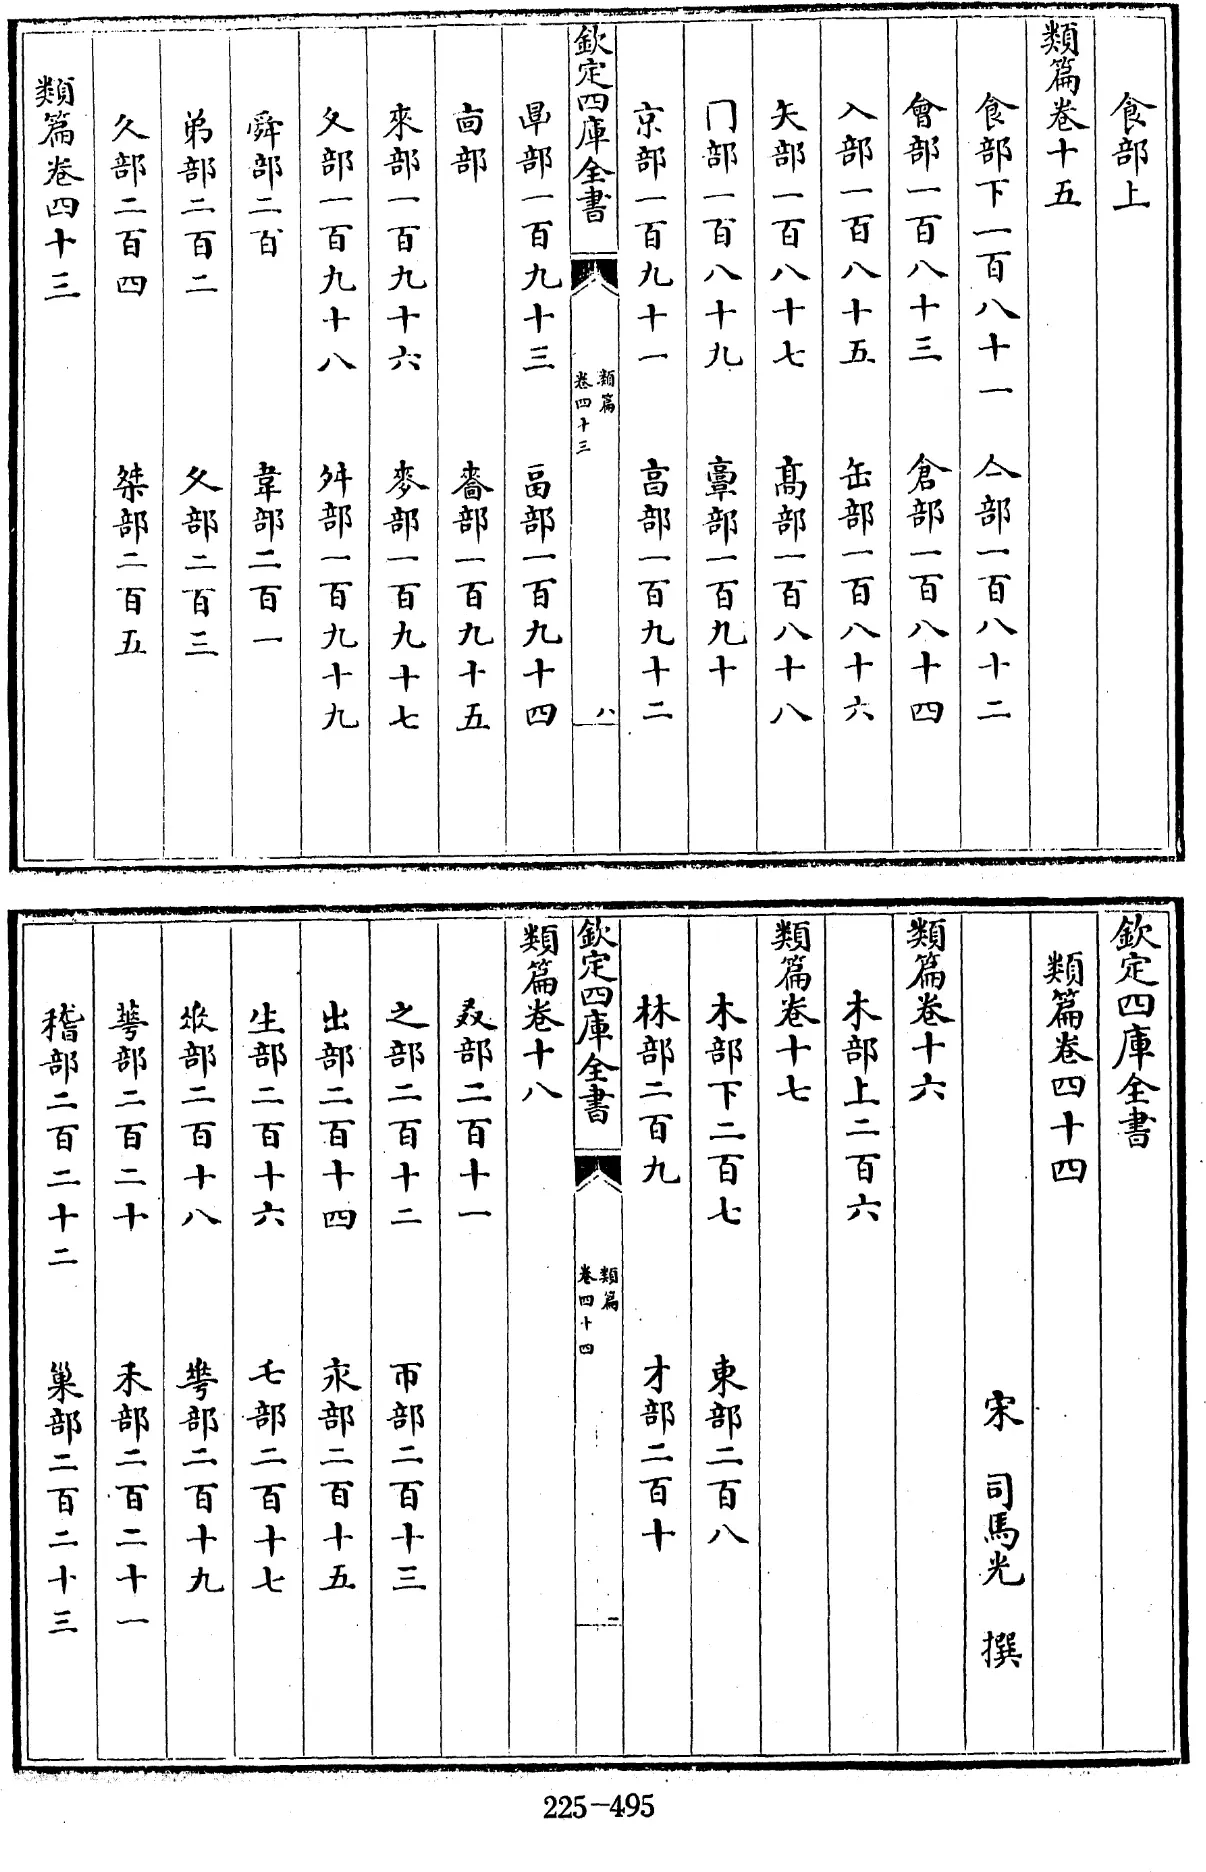 食部上
類篇卷十五
食部下一百八十一　亼部一百八十二
會部一百八十三　倉部一百八十四
入部一百八十五　缶部一百八十六
矢部一百八十七　髙部一百八十八
冂部一百八十九　𩫏部一百九十
京部一百九十一　亯部一百九十二
欽定四庫全書
類篇
卷四十三
八
㫗部一百九十三　畗部一百九十四
㐭部　嗇部一百九十五
來部一百九十六　麥部一百九十七
夊部一百九十八　舛部一百九十九
舜部二百　韋部二百一
弟部二百二　夂部二百三
久部二百四　桀部二百五
類篇卷四十三
欽定四庫全書
類篇卷四十四
宋　司馬光　撰
類篇卷十六
木部上二百六
類篇卷十七
木部下二百七　東部二百八
林部二百九　才部二百十
欽定四庫全書
類篇
卷四十四
一
類篇卷十八
叒部二百十一
之部二百十二　帀部二百十三
出部二百十四　𣎵部二百十五
生部二百十六　乇部二百十七
𠂹部二百十八　𠌶部二百十九
華部二百二十　禾部二百二十一
稽部二百二十二　巢部二百二十三
225-495